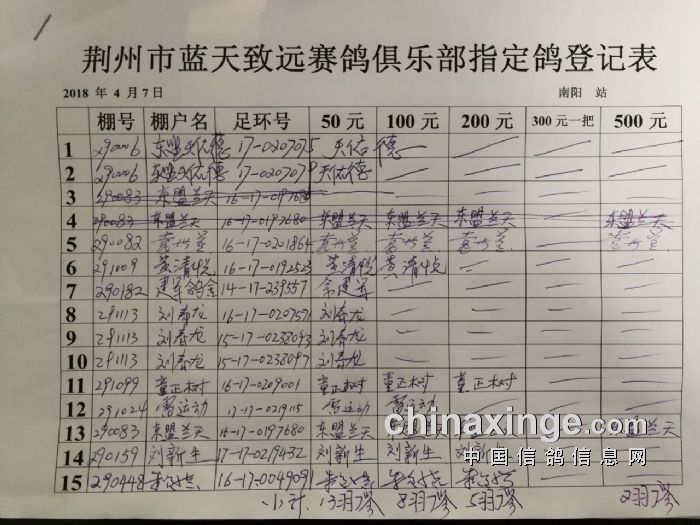 荆州市蓝天致远赛鸽俱乐部指定鸽登记表
2018 年 4 月 7 日 南阳 站
棚号 棚户名 足环号 50 元 100 元 200 元 300 元一把 500 元
1 290006 东盟天佑德 17-0207075 天佑德 — — — —
2 290006 东盟天佑德 17-020707 天佑德 — — — —
3 290083 东盟兰天 16-17-01976
4 290083 东盟兰天 16-17-0197680 东盟兰天 东盟兰天 东盟兰天 — 东盟兰天
5 290082 16-17-0201864 —
6 291009 黄清悦 16-17-0192523 黄清悦 黄清悦 — — —
7 290182 建军鸽舍 14-17-239557 余建军 — — — —
8 291113 刘春龙 16-17-0207571 刘春龙 — — — —
9 291113 刘春龙 15-17-0238093 刘春龙 — — — —
10 291113 刘春龙 15-17-0238097 刘春龙 — — — —
11 291099 董正树 16-17-0209001 董正树 董正树 董正树 — —
12 291024 雷运动 17-17-0219115 雷运动 雷运动 — — —
13 290083 东盟兰天 16-17-0197680 东盟兰天 兰天
14 290159 刘新生 17-17-0219432 刘新生 刘新生 刘新生
15 290448 16-17-0049091
小计 13羽 8羽 5羽 2羽
chinaxinge.com
中国信鸽信息网